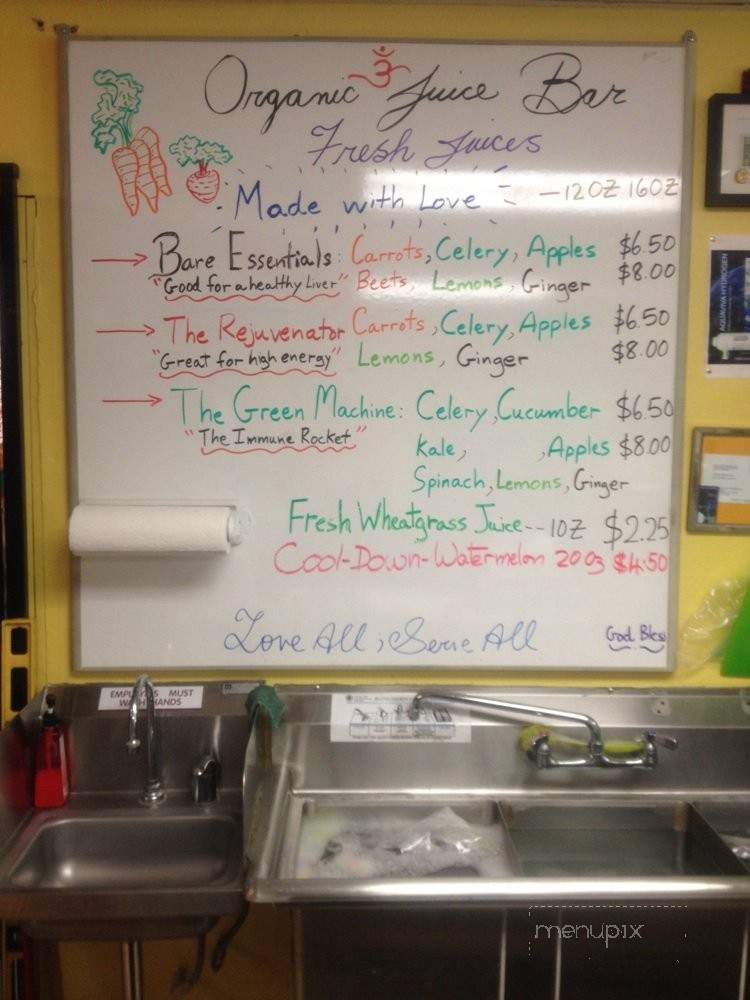 Organic ॐ Juice Bar
Fresh Juices
Made with Love — 12OZ 16OZ
Bare Essentials: Carrots, Celery, Apples $6.50
"Good for a healthy Liver" Beets, Lemons, Ginger $8.00
The Rejuvenator Carrots, Celery, Apples $6.50
"Great for high energy" Lemons, Ginger $8.00
The Green Machine: Celery, Cucumber $6.50
"The Immune Rocket" Kale, , Apples $8.00
Spinach, Lemons, Ginger
Fresh Wheatgrass Juice -- 1OZ $2.25
Cool-Down-Watermelon 20 oz $4.50
Love All ; Serve All
God Bless
EMPLOYEES MUST
WASH HANDS
AQUAVIVA HYDROGEN
menupix